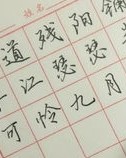 姓名
道残阳铺
江瑟瑟
可怜九月